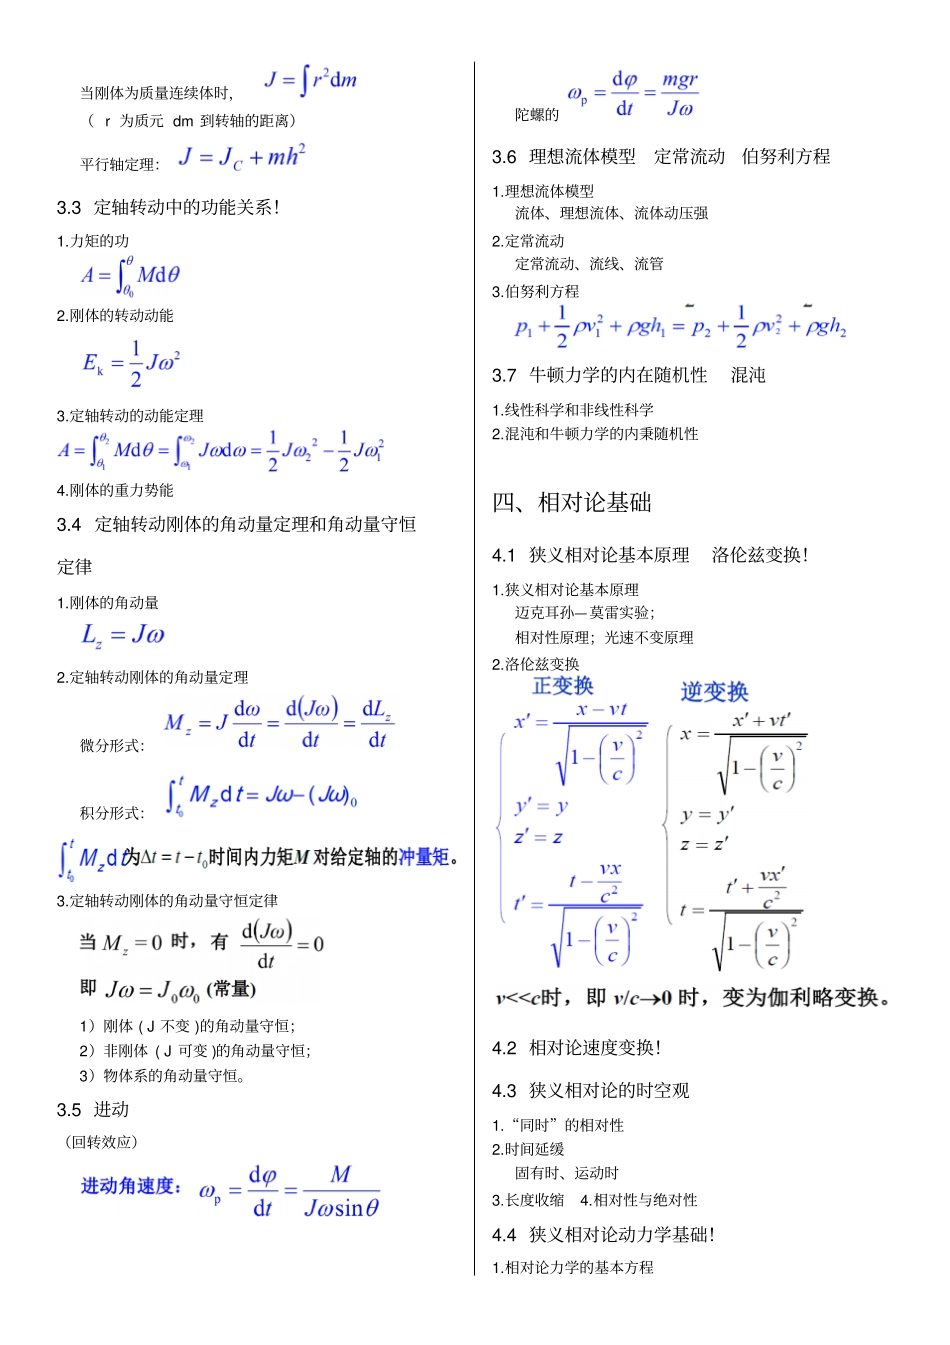 当刚体为质量连续体时, J = ∫ r²dm
（ r 为质元 dm 到转轴的距离）
平行轴定理： J = J_C + mh²
3.3 定轴转动中的功能关系！
1.力矩的功
A = ∫_{θ₀}^{θ} Mdθ
2.刚体的转动动能
E_k = 1/2 Jω²
3.定轴转动的动能定理
A = ∫_{θ₁}^{θ₂} Mdθ = ∫_{ω₁}^{ω₂} Jωdω = 1/2 Jω₂² − 1/2 Jω₁²
4.刚体的重力势能
3.4 定轴转动刚体的角动量定理和角动量守恒
定律
1.刚体的角动量
L_z = Jω
2.定轴转动刚体的角动量定理
微分形式： M_z = J dω/dt = d(Jω)/dt = dL_z/dt
积分形式： ∫_{t₀}^{t} M_z dt = Jω−(Jω)₀
∫_{t₀}^{t} M_z dt 为Δt = t − t₀时间内力矩M 对给定轴的冲量矩。
3.定轴转动刚体的角动量守恒定律
当 M_z = 0 时，有 d(Jω)/dt = 0
即 Jω = J₀ω₀ (常量)
1）刚体 ( J 不变 )的角动量守恒；
2）非刚体 ( J 可变 )的角动量守恒；
3）物体系的角动量守恒。
3.5 进动
（回转效应）
进动角速度： ω_p = dφ/dt = M/(Jω sinθ)
陀螺的 ω_p = dφ/dt = mgr/(Jω)
3.6 理想流体模型 定常流动 伯努利方程
1.理想流体模型
流体、理想流体、流体动压强
2.定常流动
定常流动、流线、流管
3.伯努利方程
p₁ + 1/2 ρv₁² + ρgh₁ = p₂ + 1/2 ρv₂² + ρgh₂
3.7 牛顿力学的内在随机性 混沌
1.线性科学和非线性科学
2.混沌和牛顿力学的内秉随机性
四、相对论基础
4.1 狭义相对论基本原理 洛伦兹变换！
1.狭义相对论基本原理
迈克耳孙—莫雷实验；
相对性原理；光速不变原理
2.洛伦兹变换
正变换 逆变换
x′ = (x − vt)/√(1 − (v/c)²) x = (x′ + vt′)/√(1 − (v/c)²)
y′ = y y = y′
z′ = z z = z′
t′ = (t − vx/c²)/√(1 − (v/c)²) t = (t′ + vx′/c²)/√(1 − (v/c)²)
v<<c时，即 v/c→0 时，变为伽利略变换。
4.2 相对论速度变换！
4.3 狭义相对论的时空观
1.“同时”的相对性
2.时间延缓
固有时、运动时
3.长度收缩 4.相对性与绝对性
4.4 狭义相对论动力学基础！
1.相对论力学的基本方程